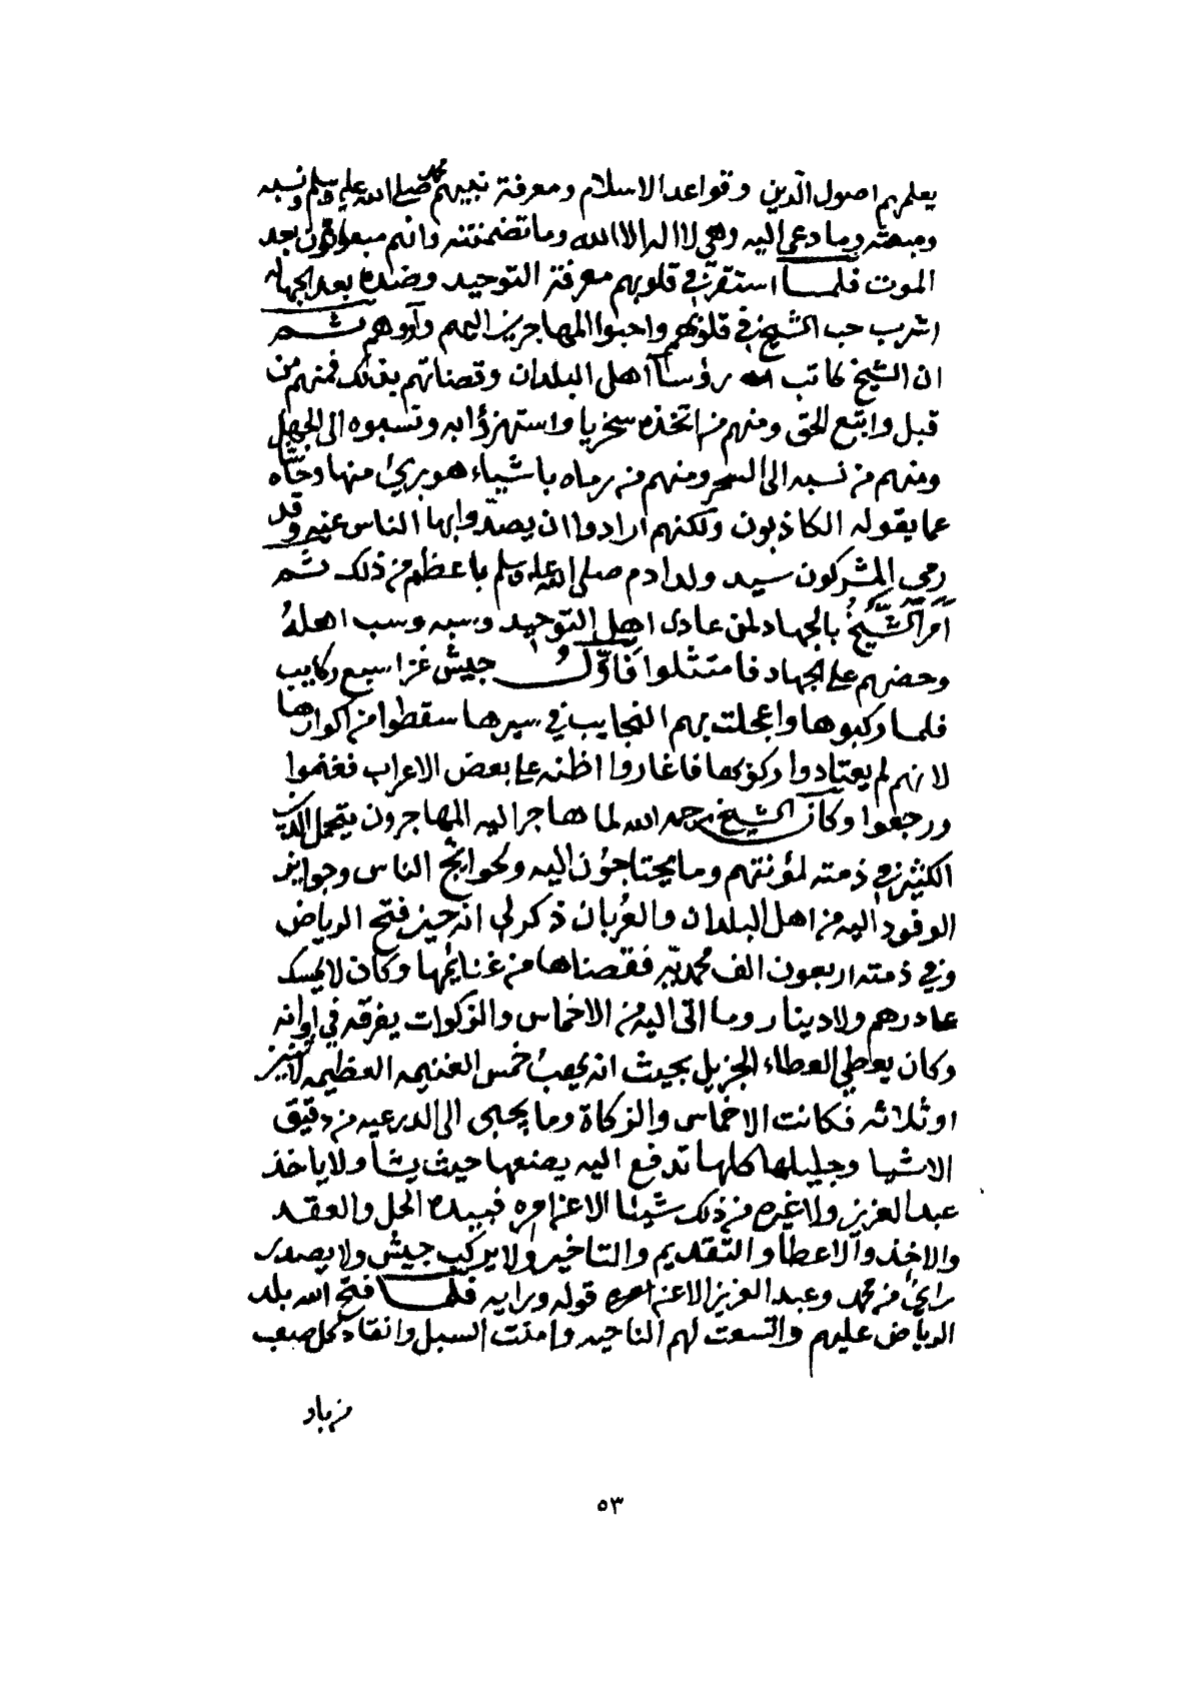 يعلمهم اصول الدين وقواعد الاسلام ومعرفة نبيهم محمد صلى الله عليه وسلم ونسبه
ومبعثه وما دعى اليه وهي لا اله الا الله وما تضمنته وانهم مبعوثون بعد
الموت فلما استقرت في قلوبهم معرفة التوحيد وضده بعد الجهاله
اشرب حب الشيخ في قلوبهم واحبوا المهاجرين اليهم وآووهم ثم
ان الشيخ كاتب رؤسآ اهل البلدان وقضاتهم بذلك فمنهم من
قبل واتبع الحق ومنهم من اتخذه سخريا واستهزؤا به ونسبوه الى الجهل
ومنهم من نسبه الى السحر ومنهم من رماه باشياء هو بريئ منها وحاشاه
عما يقوله الكاذبون ولكنهم ارادوا ان يصدوا بها الناس عنه وقد
رمى المشركون سيد ولد ادم صلى الله عليه وسلم باعظم من ذلك ثم
امر الشيخ بالجهاد لمن عادى اهل التوحيد وسبه وسب اهله
وحضهم على الجهاد فامتثلوا فاول جيش غزا سبع ركايب
فلما ركبوها واعجلت بهم النجايب في سيرها سقطوا من اكوارها
لانهم لم يعتادوا ركوبها فاغاروا اظنه على بعض الاعراب فغنموا
ورجعوا وكان الشيخ رحمه الله لما هاجر اليه المهاجرون يتحمل الدين
الكثير في ذمته لمؤنتهم وما يحتاجون اليه ولحوايج الناس وجوايز
الوفود اليه من اهل البلدان والعربان ذكر لي انه حين فتح الرياض
وفي ذمته اربعون الف محمديه فقضاها من غنايمها وكان لا يمسك
على درهم ولا دينار وما اتى اليه من الاخماس والزكوات يفرقه في اوانه
وكان يعطي العطاء الجزيل بحيث انه يهب خمس الغنيمه العظيمه لاثنين
او ثلاثه فكانت الاخماس والزكاة وما يجبى الى الدرعيه من دقيق
الاشيا وجليلها كلها تدفع اليه يضعها حيث يشا ولا ياخذ
عبد العزيز ولا غيره من ذلك شيئا الا عن امره فبيده الحل والعقد
والاخذ والاعطا والتقديم والتاخير ولا يركب جيش ولا يصدر
رائ من محمد وعبد العزيز الا عن قوله ورايه فلما فتح الله بلد
الرياض عليهم واتسعت لهم الناحيه وامنت السبل وانقاد كل صعب
من باد
٥٣